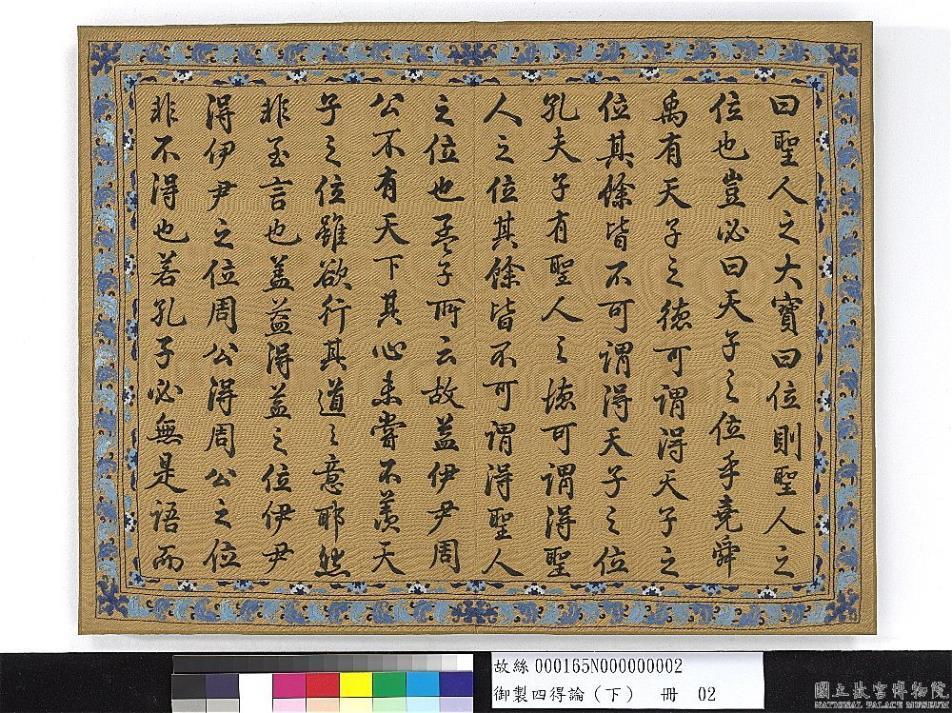 曰聖人之大寶曰位則聖人之
位也豈必曰天子之位乎堯舜
禹有天子之德可謂得天子之
位其餘皆不可謂得天子之位
孔夫子有聖人之德可謂得聖
人之位其餘皆不可謂得聖人
之位也孟子所云故益伊尹周
公不有天下其心未嘗不羨天
子之位雖欲行其道之意耶然
非至言也蓋益得益之位伊尹
得伊尹之位周公得周公之位
非不得也若孔子必無是語而
故絲000165N000000002
御製四得論(下) 冊 02
國立故宮博物院
NATIONAL PALACE MUSEUM